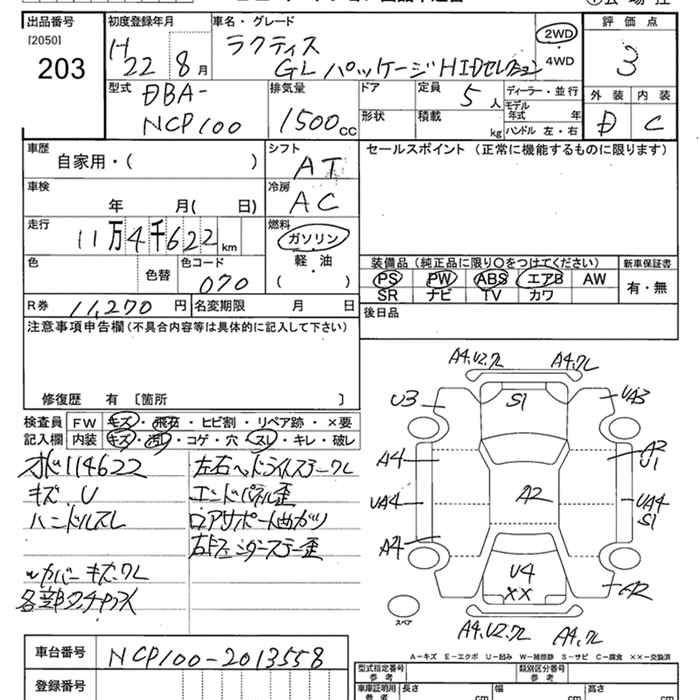 出品番号
[2050]
203
初度登録年月
H 22 8月
車名・グレード
ラクティス
GL パッケージ HIDセレクション
2WD
4WD
評価点
3
外装 内装
D C
型式
DBA-
NCP100
排気量
1500cc
ドア
定員 5人
ディーラー・並行
モデル年式 年
形状
積載 kg
ハンドル 左・右
車歴
自家用・( )
シフト
AT
セールスポイント (正常に機能するものに限ります)
車検
年 月( 日)
冷房
AC
走行
11万4千622km
燃料
ガソリン
軽・油
( ・ )
色
色替
色コード
070
装備品 (純正品に限り○をつけてください)
PS PW ABS エアB AW
SR ナビ TV カワ
新車保証書
有・無
R券 11,270円
名変期限 月 日
後日品
注意事項申告欄 (不具合内容等は具体的に記入して下さい)
修復歴 有 〔箇所 〕
検査員記入欄
FW キズ・飛石・ヒビ割・リペア跡・×要
内装 キズ・汚れ・コゲ・穴・スレ・キレ・破レ
オド114622
キズ U
ハンドルスレ
カバーキズワレ
各部タッチアップ
左右ヘッドライトステーワレ
エンドパネル歪
ロアサポート曲がり
右Fフェンダーステー歪
A4.U2.ワレ
A4.ワレ
U3
S1
UA3
A4
A2
U1
UA4
A2
UA4
S1
A4
U4
XX
A2
スペア
A4.U2.ワレ
A4.ワレ
A-キズ E-エクボ U-凹み W-補修跡 S-サビ C-腐食 ××-交換済
車台番号
NCP100-2013558
登録番号
型式指定番号 参考
類別区分番号 参考
車庫証明用 参考
長さ cm
幅 cm
高さ cm